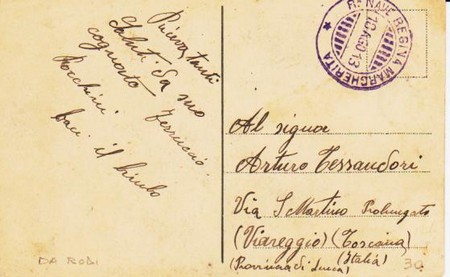 Riceva tanti
saluti da suo
cognato Ferruccio
Facchini
baci il bimbo
R. NAVE REGINA MARGHERITA
13
Al signor
Arturo Tessandori
Via S Martino Prolungato
(Viareggio) (Toscana)
(Provincia di Lucca) (Italia)
DA RODI
30